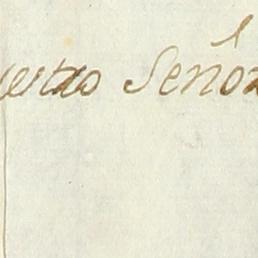 uestro Señor